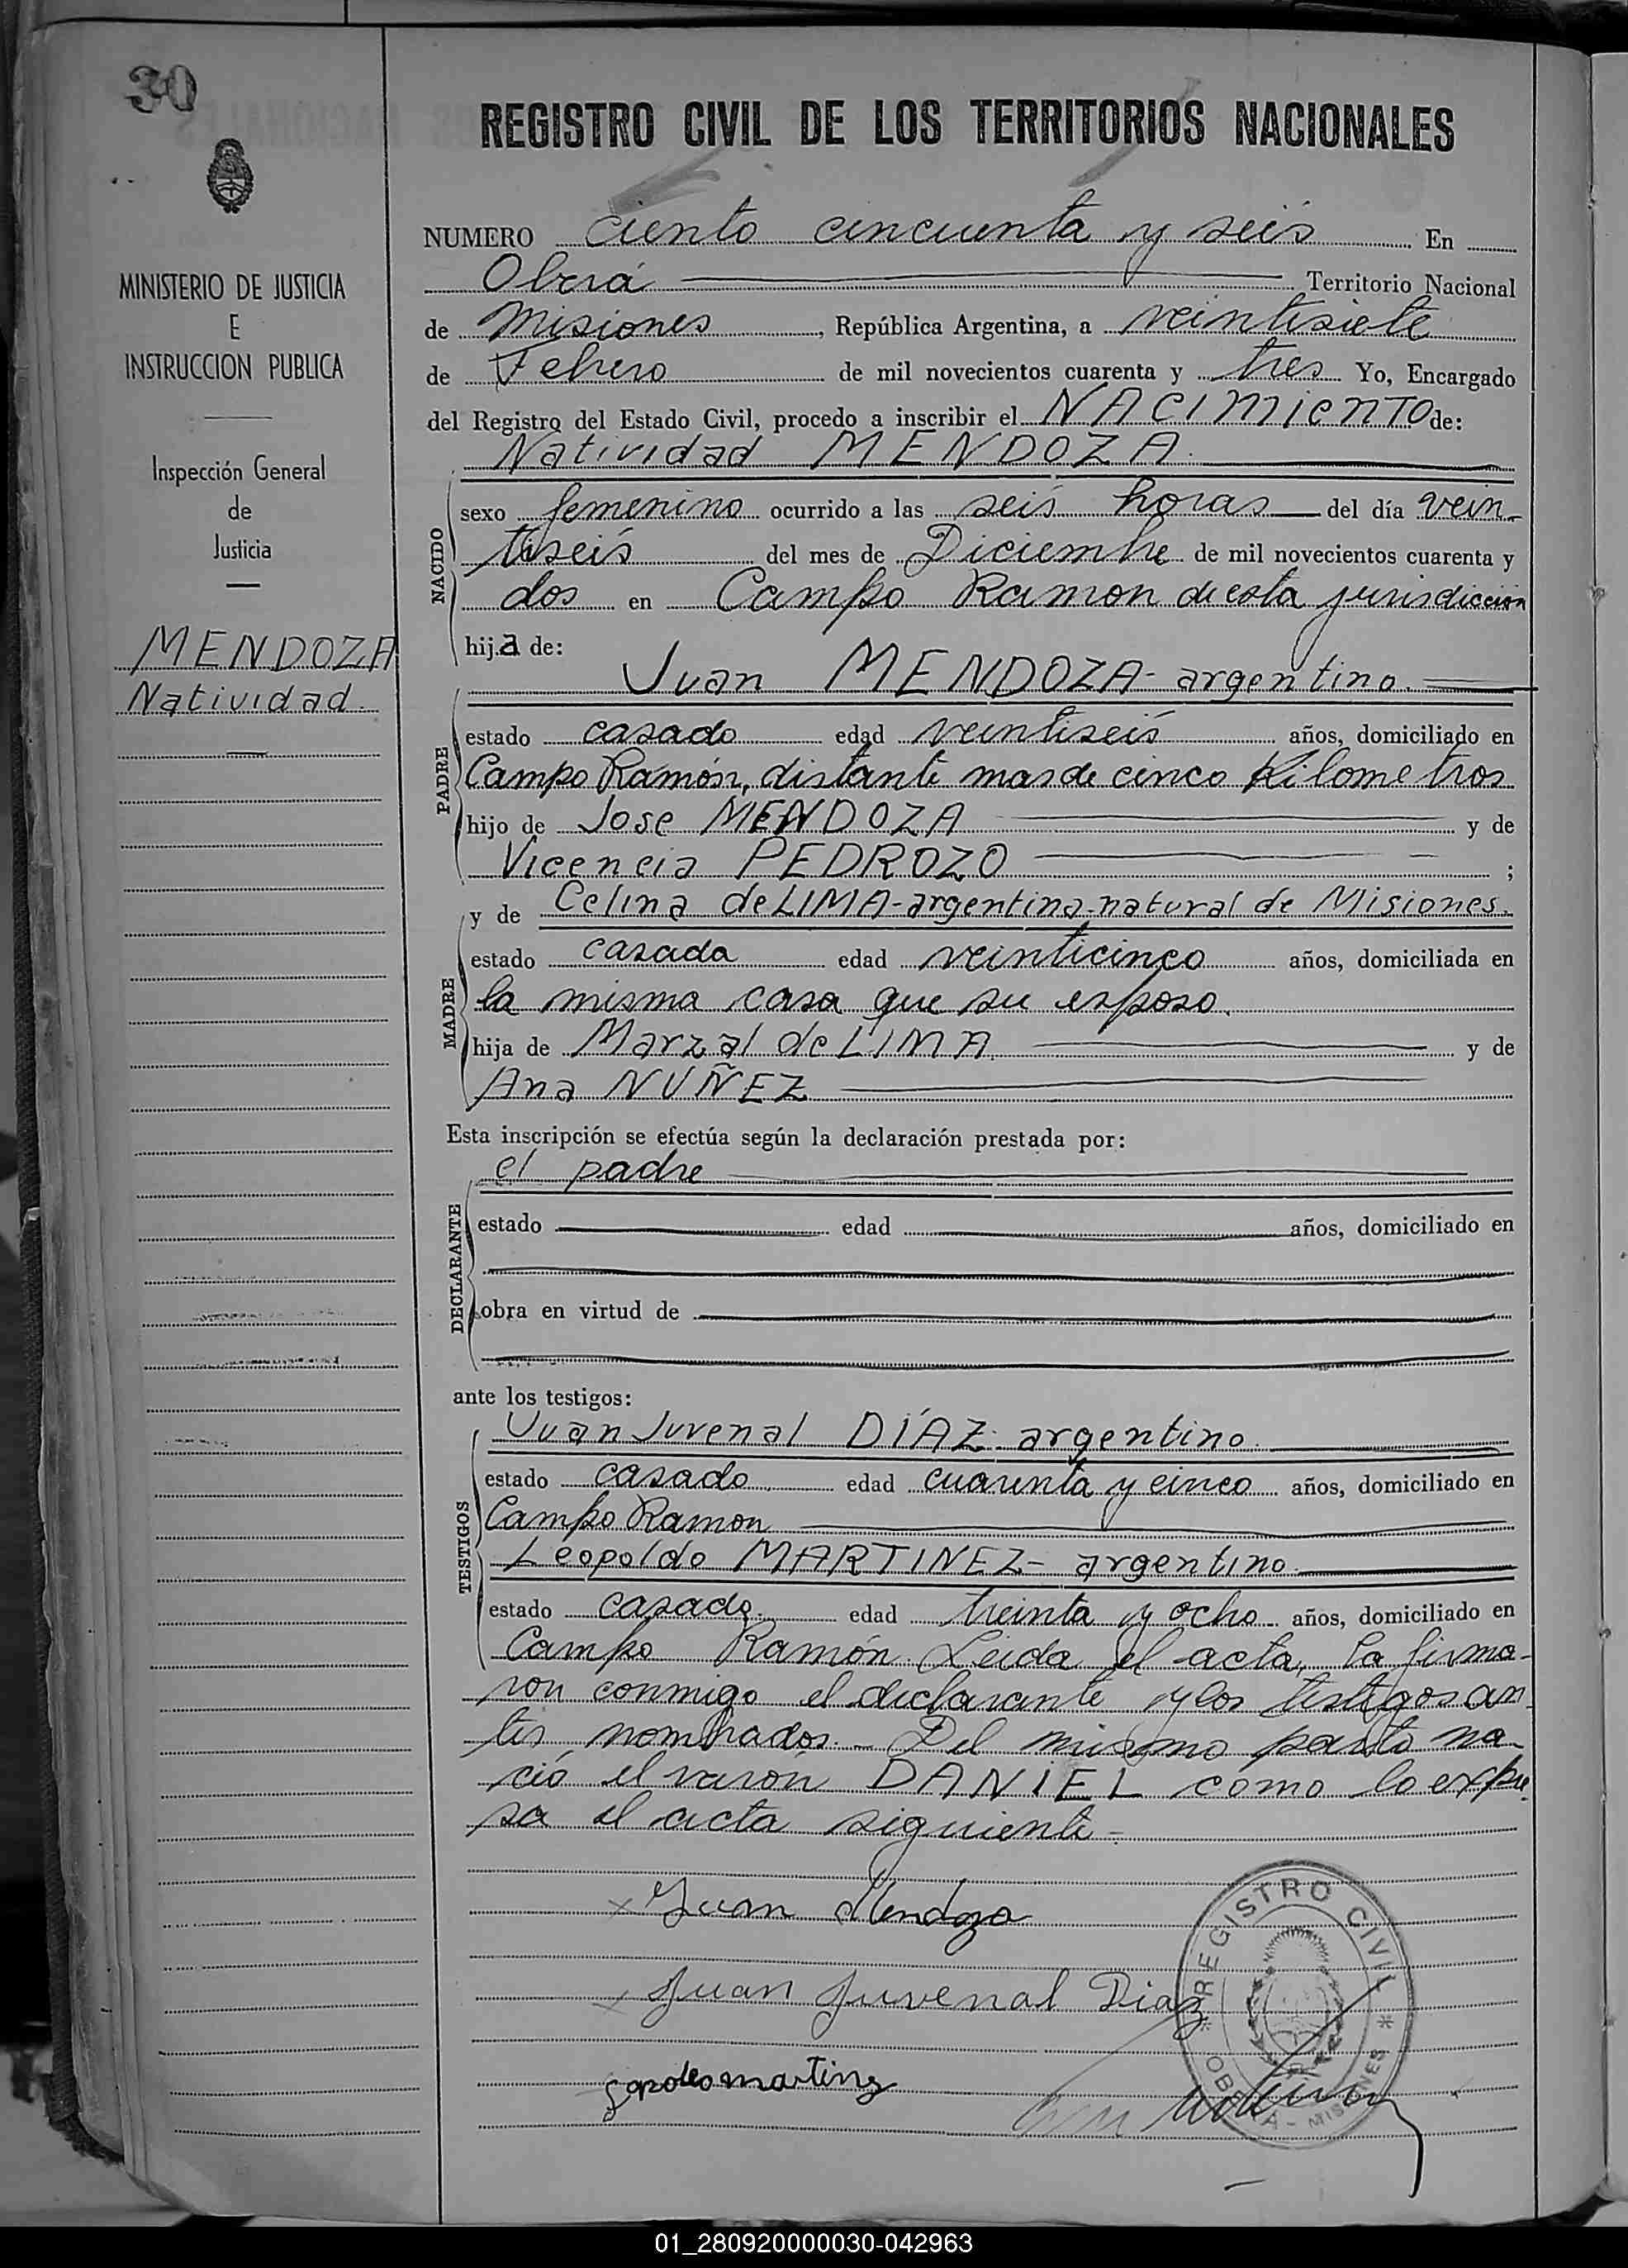 30
REGISTRO CIVIL DE LOS TERRITORIOS NACIONALES
NUMERO ciento cincuenta y seis En
Oberá Territorio Nacional
MINISTERIO DE JUSTICIA
E
INSTRUCCION PUBLICA
de Misiones, República Argentina, a veintisiete
de Febrero de mil novecientos cuarenta y tres Yo, Encargado
del Registro del Estado Civil, procedo a inscribir el NACIMIENTO de:
Natividad MENDOZA.
Inspección General
de
Justicia
NACIDO
sexo femenino ocurrido a las seis horas del día vein-
tiseis del mes de Diciembre de mil novecientos cuarenta y
dos en Campo Ramon de esta jurisdicción
hija de:
MENDOZA
Natividad.
Juan MENDOZA - argentino.
PADRE
estado casado edad veintiseis años, domiciliado en
Campo Ramón, distante mas de cinco Kilometros
hijo de Jose MENDOZA y de
Vicencia PEDROZO ;
y de Celina de LIMA - argentina, natural de Misiones.
MADRE
estado casada edad veinticinco años, domiciliada en
la misma casa que su esposo.
hija de Marzal de LIMA. y de
Ana NUÑEZ
Esta inscripción se efectúa según la declaración prestada por:
el padre
DECLARANTE
estado edad años, domiciliado en
obra en virtud de
ante los testigos:
Juan Juvenal DÍAZ - argentino.
TESTIGOS
estado casado edad cuarenta y cinco años, domiciliado en
Campo Ramon
Leopoldo MARTINEZ - argentino.
estado casado edad treinta y ocho años, domiciliado en
Campo Ramón. Leida el acta, la firma-
ron conmigo el declarante y los testigos an-
tes nombrados.- Del mismo parto na-
ció el varón DANIEL como lo expre-
sa el acta siguiente.-
Juan Mendoza
Juan Juvenal Diaz
REGISTRO CIVIL
OBERA - MISIONES
01_280920000030-042963